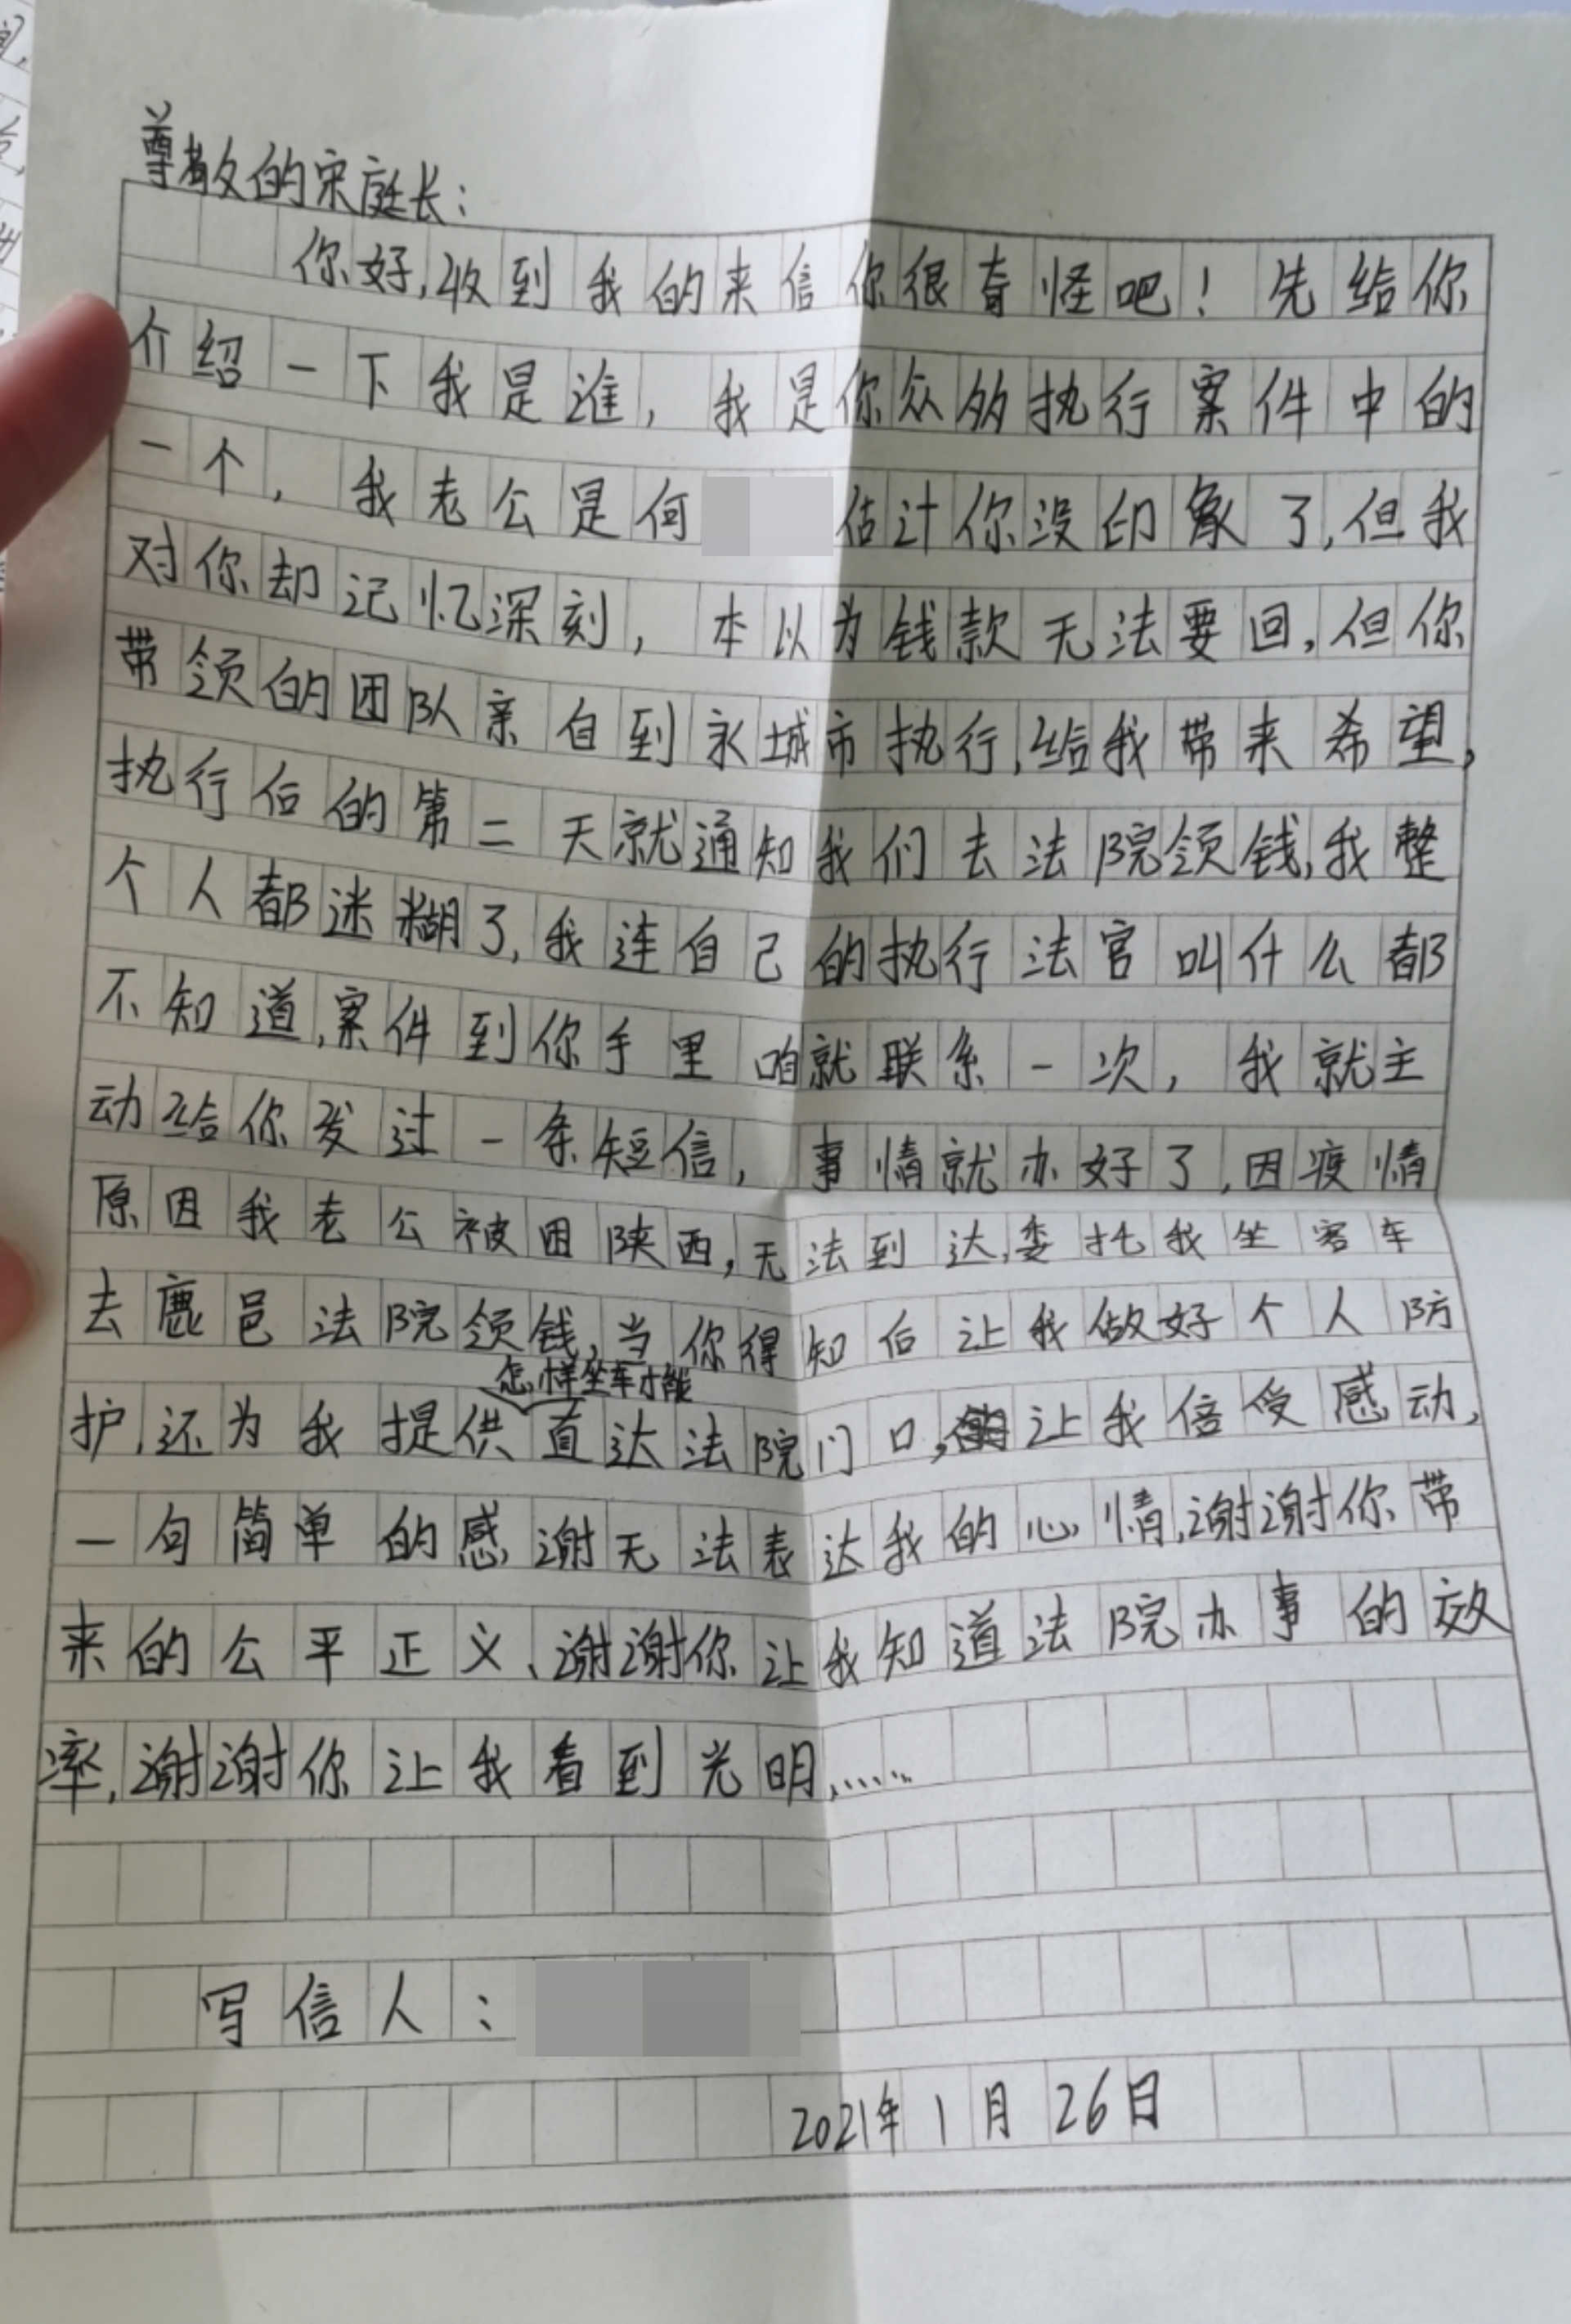 尊敬的宋庭长:
你好,收到我的来信你很奇怪吧!先给你
介绍一下我是谁,我是你众多执行案件中的
一个,我老公是何 估计你没印象了,但我
对你却记忆深刻,本以为钱款无法要回,但你
带领的团队亲自到永城市执行,给我带来希望,
执行后的第二天就通知我们去法院领钱,我整
个人都迷糊了,我连自己的执行法官叫什么都
不知道,案件到你手里咱就联系一次,我就主
动给你发过一条短信,事情就办好了,因疫情
原因我老公被困陕西,无法到达,委托我坐客车
去鹿邑法院领钱,当你得知后让我做好个人防
怎样坐车才能
护,还为我提供直达法院门口,让我倍受感动,
一句简单的感谢无法表达我的心情,谢谢你带
来的公平正义、谢谢你让我知道法院办事的效
率,谢谢你让我看到光明,……
写信人:
2021年1月26日